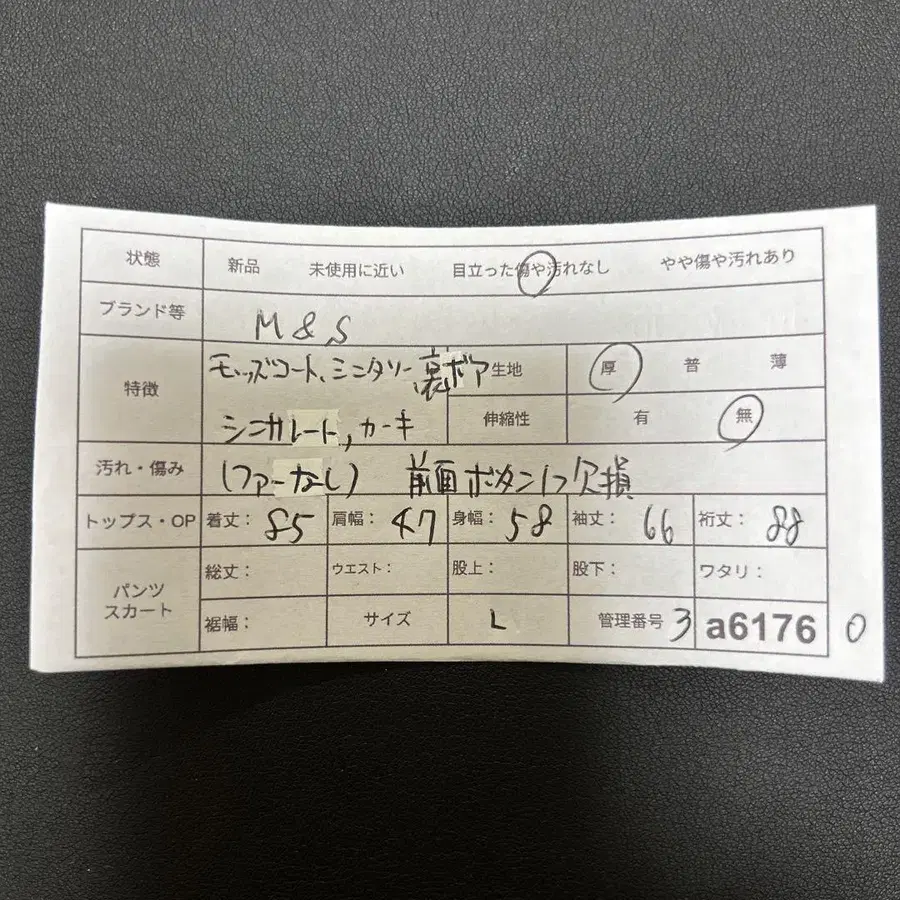 状態 新品 未使用に近い 目立った傷や汚れなし やや傷や汚れあり
ブランド等 M & S
特徴 モッズコート、ミニタリー 裏ボア 生地 厚 普 薄
シニカルート, カーキ 伸縮性 有 無
汚れ・傷み (ファーなし) 前面ボタン1つ欠損
トップス・OP 着丈: 85 肩幅: 47 身幅: 58 袖丈: 66 裄丈: 88
パンツ スカート 総丈: ウエスト: 股上: 股下: ワタリ:
裾幅: サイズ L 管理番号 3 a6176 0